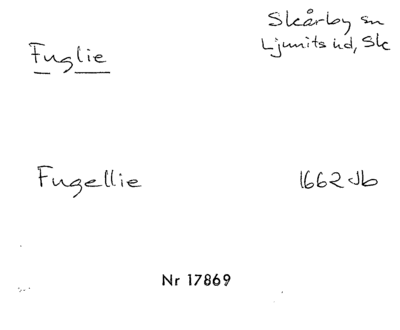 Skårby sn
Fuglie
Ljunits hd, Sk
Fugellie
1662 Jb
Nr 17869